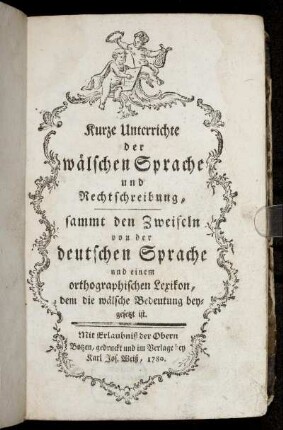 Kurze Unterrichte
der
wälschen Sprache
und
Rechtschreibung,
sammt den Zweifeln
von der
deutschen Sprache
und einem
orthographischen Lexikon,
dem die wälsche Bedeutung bey-
gesetzt ist.
Mit Erlaubniß der Obern
Botzen, gedruckt und im Verlage bey
Karl Jos. Weiß, 1780.